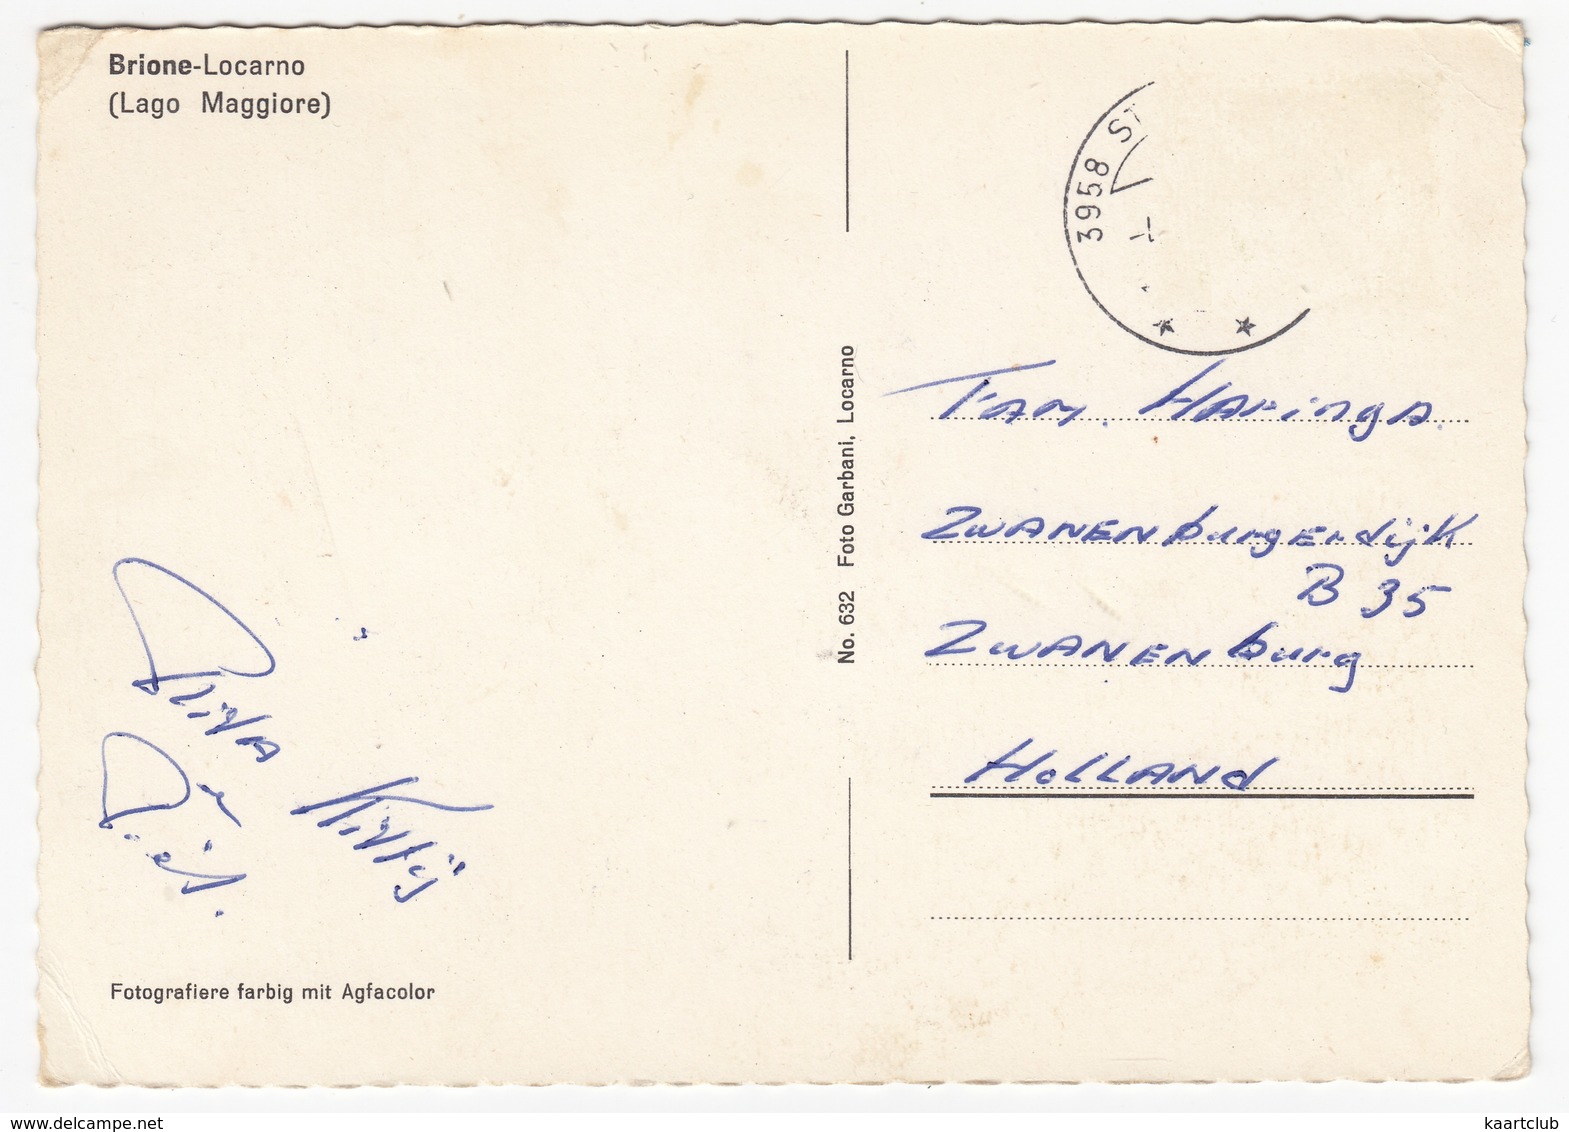 Brione-Locarno
(Lago Maggiore)
3958 ST
Fam. Haringa.
Zwanenburgerdijk
B 35
Zwanenburg
Holland
No. 632 Foto Garbani, Locarno
Kitty
Fotografiere farbig mit Agfacolor
www.delcampe.net
kaartclub